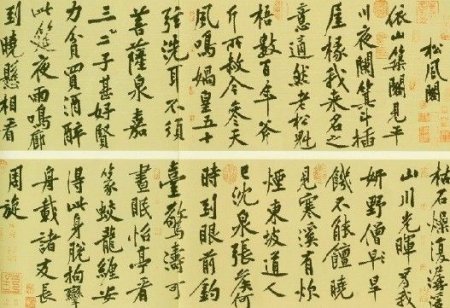 松風閣
依山築閣見平
川夜闌箕斗插
屋椽我來名之
意適然老松魁
梧數百年斧
斤所赦今參天
風鳴媧皇五十
弦洗耳不須
菩薩泉嘉
三二子甚好賢
力貧買酒醉
此筵夜雨鳴廊
到曉懸相看
枯石燥復潺湲
山川光暉為我
妍野僧旱
饑不能饘曉
見寒溪有炊
煙東坡道人
已沈泉張侯何
時到眼前釣
臺驚濤可
晝眠怡亭看
篆蛟龍纏安
得此身脫拘攣
舟載諸友長
周旋